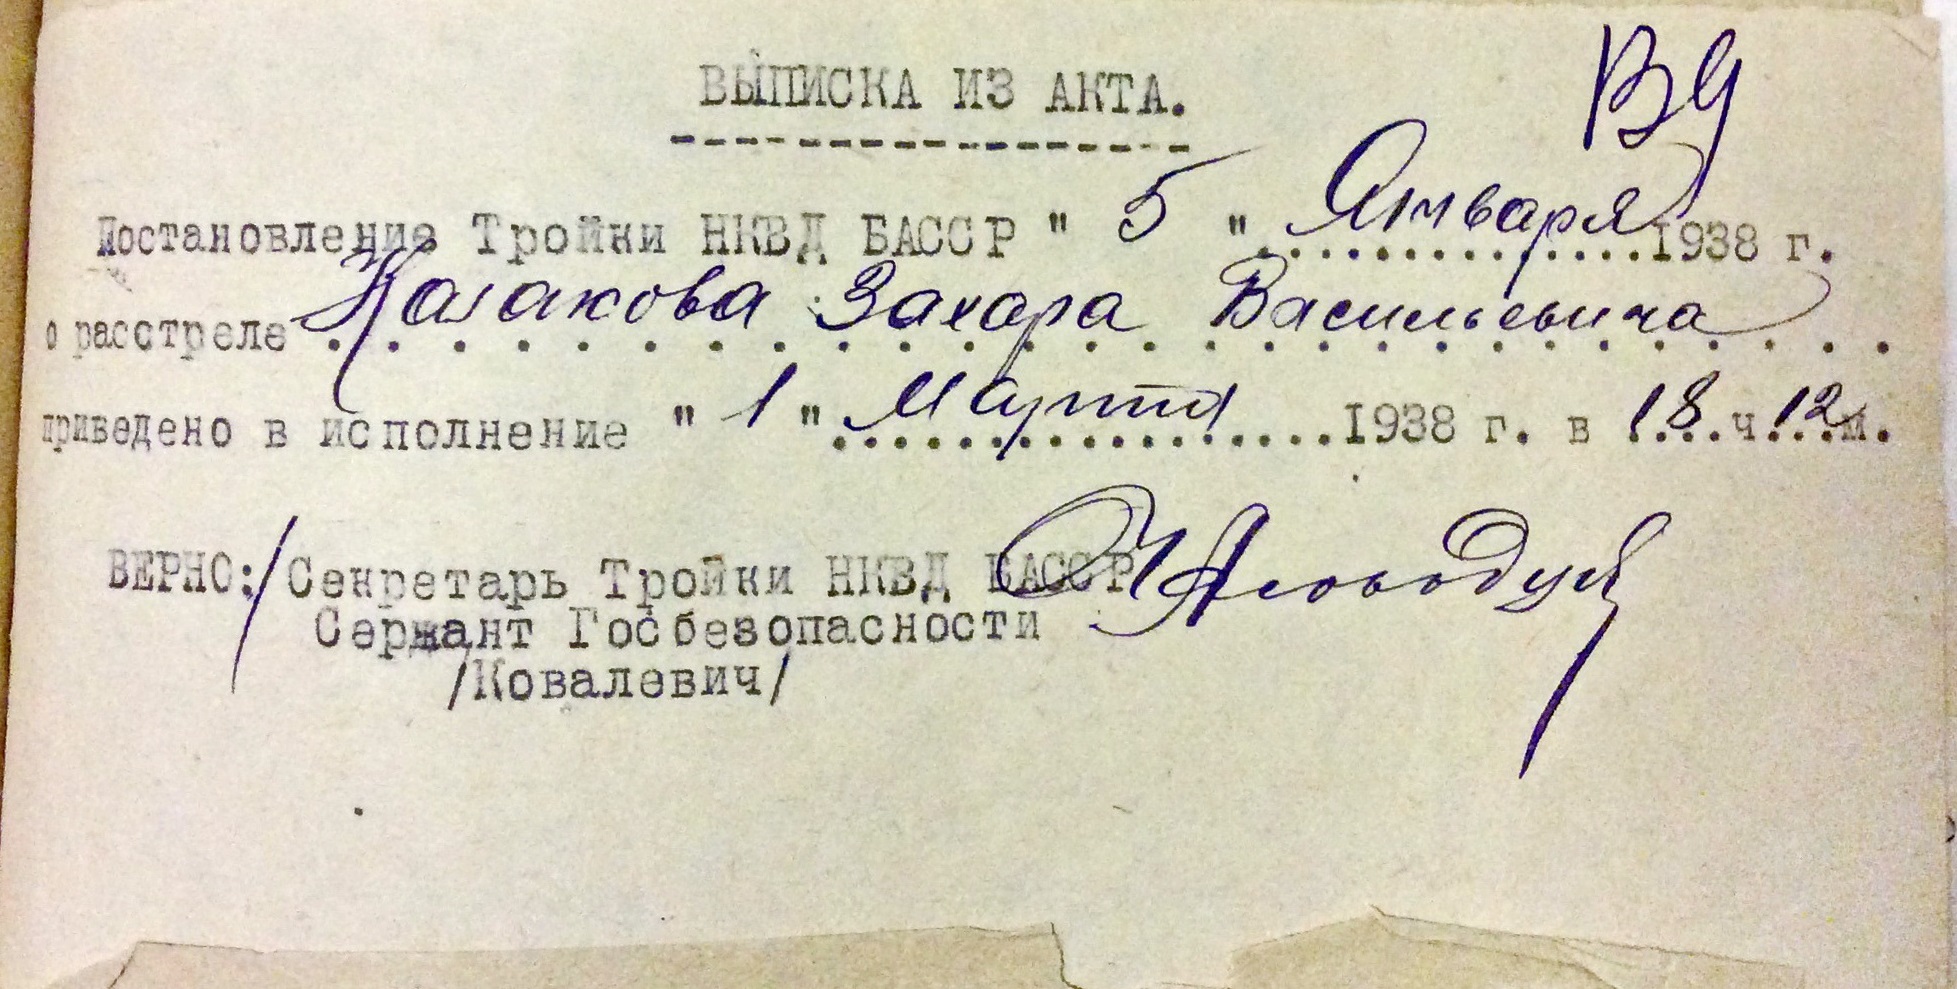 ВЫПИСКА ИЗ АКТА.
Постановление Тройки НКВД БАССР " 5 " Января 1938 г.
о расстреле Казакова Захара Васильевича
приведено в исполнение " 1 " Марта 1938 г. в 18 ч. 12 м.
ВЕРНО: / Секретарь Тройки НКВД БАССР
Сержант Госбезопасности
/Ковалевич/